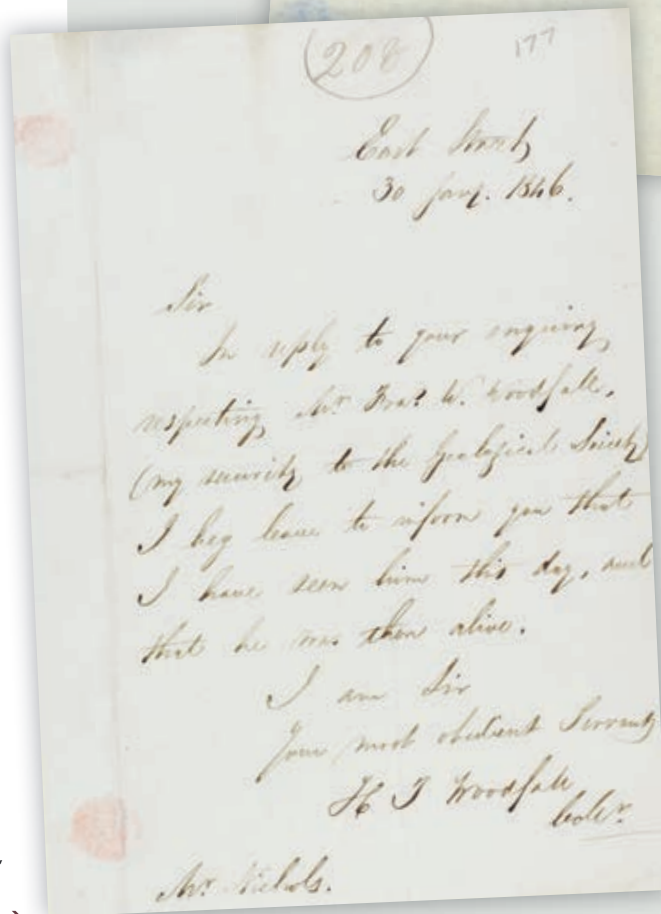 208
177
East Street
30 Jany. 1846.
Sir
In reply to your enquiry
respecting Mr. Fras. W. Woodfall,
(my security to the Geological Society)
I beg leave to inform you that
I have seen him this day, and
that he was then alive.
I am Sir
Your most obedient Servant
H J Woodfall
Mr. Nichols.